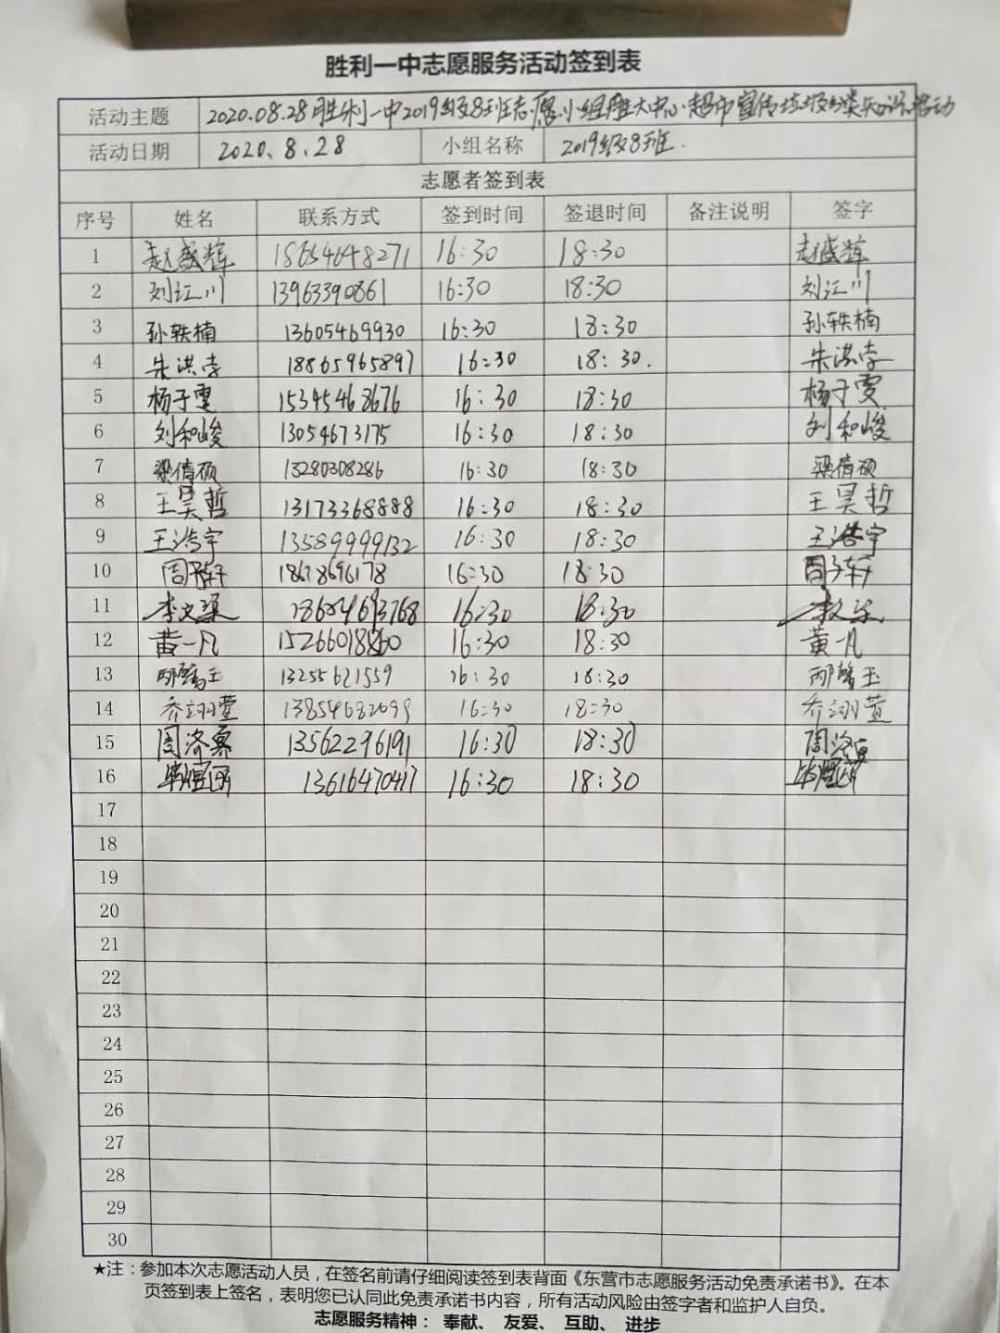 胜利一中志愿服务活动签到表
活动主题 2020.08.28胜利一中2019级8班志愿小组雅大中心超市宣传垃圾分类知识活动
活动日期 2020.8.28 小组名称 2019级8班.
志愿者签到表
序号 姓名 联系方式 签到时间 签退时间 备注说明 签字
1 赵盛辉 18654648271 16:30 18:30 赵盛辉
2 刘江川 13963390861 16:30 18:30 刘江川
3 孙轶楠 13605469930 16:30 18:30 孙轶楠
4 朱洪李 18865965897 16:30 18:30. 朱洪李
5 杨于雯 15345468676 16:30 18:30 杨于雯
6 刘和峻 13054673175 16:30 18:30 刘和峻
7 梁倩硕 13280308286 16:30 18:30 梁倩硕
8 王昊哲 13173368888 16:30 18:30 王昊哲
9 王浩宇 13589999132 16:30 18:30 王浩宇
10 周子轩 18678696178 16:30 18:30 周子轩
11 李文 18684693768 16:30 18:30 李文
12 黄一凡 15266018860 16:30 18:30 黄一凡
13 玉 13255621559 16:30 18:30 玉
14 乔翊萱 13854682099 16:30 18:30 乔翊萱
15 周济 13562296191 16:30 18:30 周济
16 13616470417 16:30 18:30
17
18
19
20
21
22
23
24
25
26
27
28
29
30
★注：参加本次志愿活动人员，在签名前请仔细阅读签到表背面《东营市志愿服务活动免责承诺书》。在本
页签到表上签名，表明您已认同此免责承诺书内容，所有活动风险由签字者和监护人自负。
志愿服务精神： 奉献、 友爱、 互助、 进步